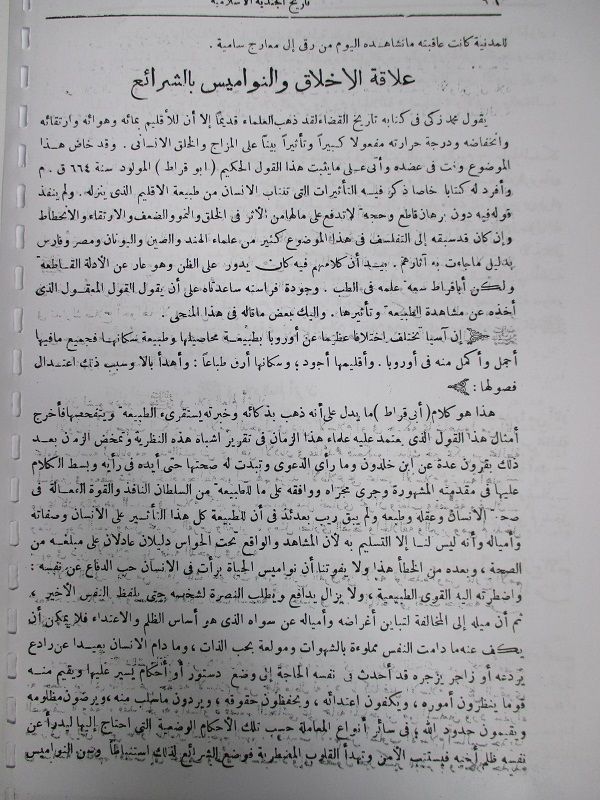 ٩٦ تاريخ الجندية الاسلامية
للمدنية كانت عاقبته ما نشاهده اليوم من رقى إلى معارج سامية .
علاقة الاخلاق والنواميس بالشرائع
يقول محمد زكى فى كتابه تاريخ القضاء لقد ذهب العلماء قديمًا إلا أن للأقليم بمائه وهوائه وارتقائه
وانخفاضه ودرجة حرارته مفعولا كبيراً وتأثيراً بيناً على المزاج والخلق الانسانى . وقد خاض هذا
الموضوع وفت فى عضده وأتى على ما يثبت هذا القول الحكيم ( ابو قراط ) المولود سنة ٦٦٤ ق . م
وأفرد له كتابا خاصا ذكر فيه التأثيرات التى تنتاب الانسان من طبيعة الاقليم الذى ينزله . ولم ينفذ
قوله فيه دون برهان قاطع وحجة لا تدفع على مالها من الأثر فى الخلق والنمو والضعف والارتقاء والانحطاط
وإن كان قد سبقه إلى التفلسف فى هذا الموضوع كثير من علماء الهند والصين واليونان ومصر وفارس
بدليل ما جاءت به آثارهم . بيد أن كلامهم فيه كان يدور على الظن وهو عار عن الأدلة القاطعة
ولكن أباقراط سعة علمه فى الطب . وجودة فراسته ساعدتاه على أن يقول القول المعقول الذى
أخذه عن مشاهدة الطبيعة وتأثيرها . واليك بعض ما قاله فى هذا المنحى .
إن آسيا تختلف اختلافا عظيما عن أوروبا بطبيعة محاصيلها وطبيعة سكانها فجميع مافيها
أجمل وأكمل منه فى أوروبا . وأقليمها أجود ، وسكانها أرق طباعاً : وأهدأ بالا وسبب ذلك اعتدال
فصولها :
هذا هو كلام ( أبى قراط ) مما يدل على أنه ذهب بذكائه وخبرته يستقرىء الطبيعة ويتفحصها فأخرج
أمثال هذا القول الذى يعتمد عليه علماء هذا الزمان فى تقرير اشباه هذه النظرية وتمخض الزمان بعد
ذلك بقرون عدة عن ابن خلدون وما رأى الدعوى وتبدت له صحتها حتى أيده فى رأيه وبسط الكلام
عليها فى مقدمته المشهورة وجرى مجراه ووافقه على ما للطبيعة من السلطان النافذ والقوة الفعالة فى
صحة الانسان وعقله وطبعه ولم يبق ريب بعدئذ فى أن للطبيعة كل هذا التأثير على الانسان وصفاته
وأمياله وأنه ليس لنا إلا التسليم به لأن المشاهد والواقع تحت الحواس دليلان عادلان على مبلغه من
الصحة ، وبعده من الخطأ هذا ولا يفوتنا أن نواميس الحياة برأت فى الانسان حب الدفاع عن نفسه :
واضطرته اليه القوى الطبيعية ، ولا يزال يدافع ويطلب النصرة لشخصه حتى يلفظ النفس الأخير .
ثم أن ميله إلى المخالفة لتباين أغراضه وأمياله عن سواه الذى هو أساس الظلم والاعتداء فلا يمكن أن
يكف عنه ما دامت النفس مملوءة بالشهوات ومولعة بحب الذات ، وما دام الانسان بعيدا عن رادع
يردعه أو زاجر يزجره قد أحدث فى نفسه الحاجة إلى وضع دستور أو أحكام يسير عليها ويقيم منه
قوما ينظرون أموره ، ويكفون اعتدائه ، ويحفظون حقوقه ، ويردون ما سلب منه ، ويرضون مظلومه
ويقيمون حدود الله ، فى سائر أنواع المعاملة حسب تلك الأحكام الوضعية التى احتاج إليها ليدرأ عن
نفسه ظلم أخيه فيستتب الأمن وتهدأ القلوب المضطربة فوضع الشرائع لذلك استنباطاً وبين النواميس